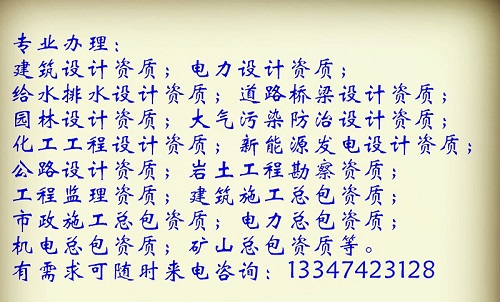 专业办理：
建筑设计资质；电力设计资质；
给水排水设计资质；道路桥梁设计资质；
园林设计资质；大气污染防治设计资质；
化工工程设计资质；新能源发电设计资质；
公路设计资质；岩土工程勘察资质；
工程监理资质；建筑施工总包资质；
市政施工总包资质；电力总包资质；
机电总包资质；矿山总包资质等。
有需求可随时来电咨询：13347423128